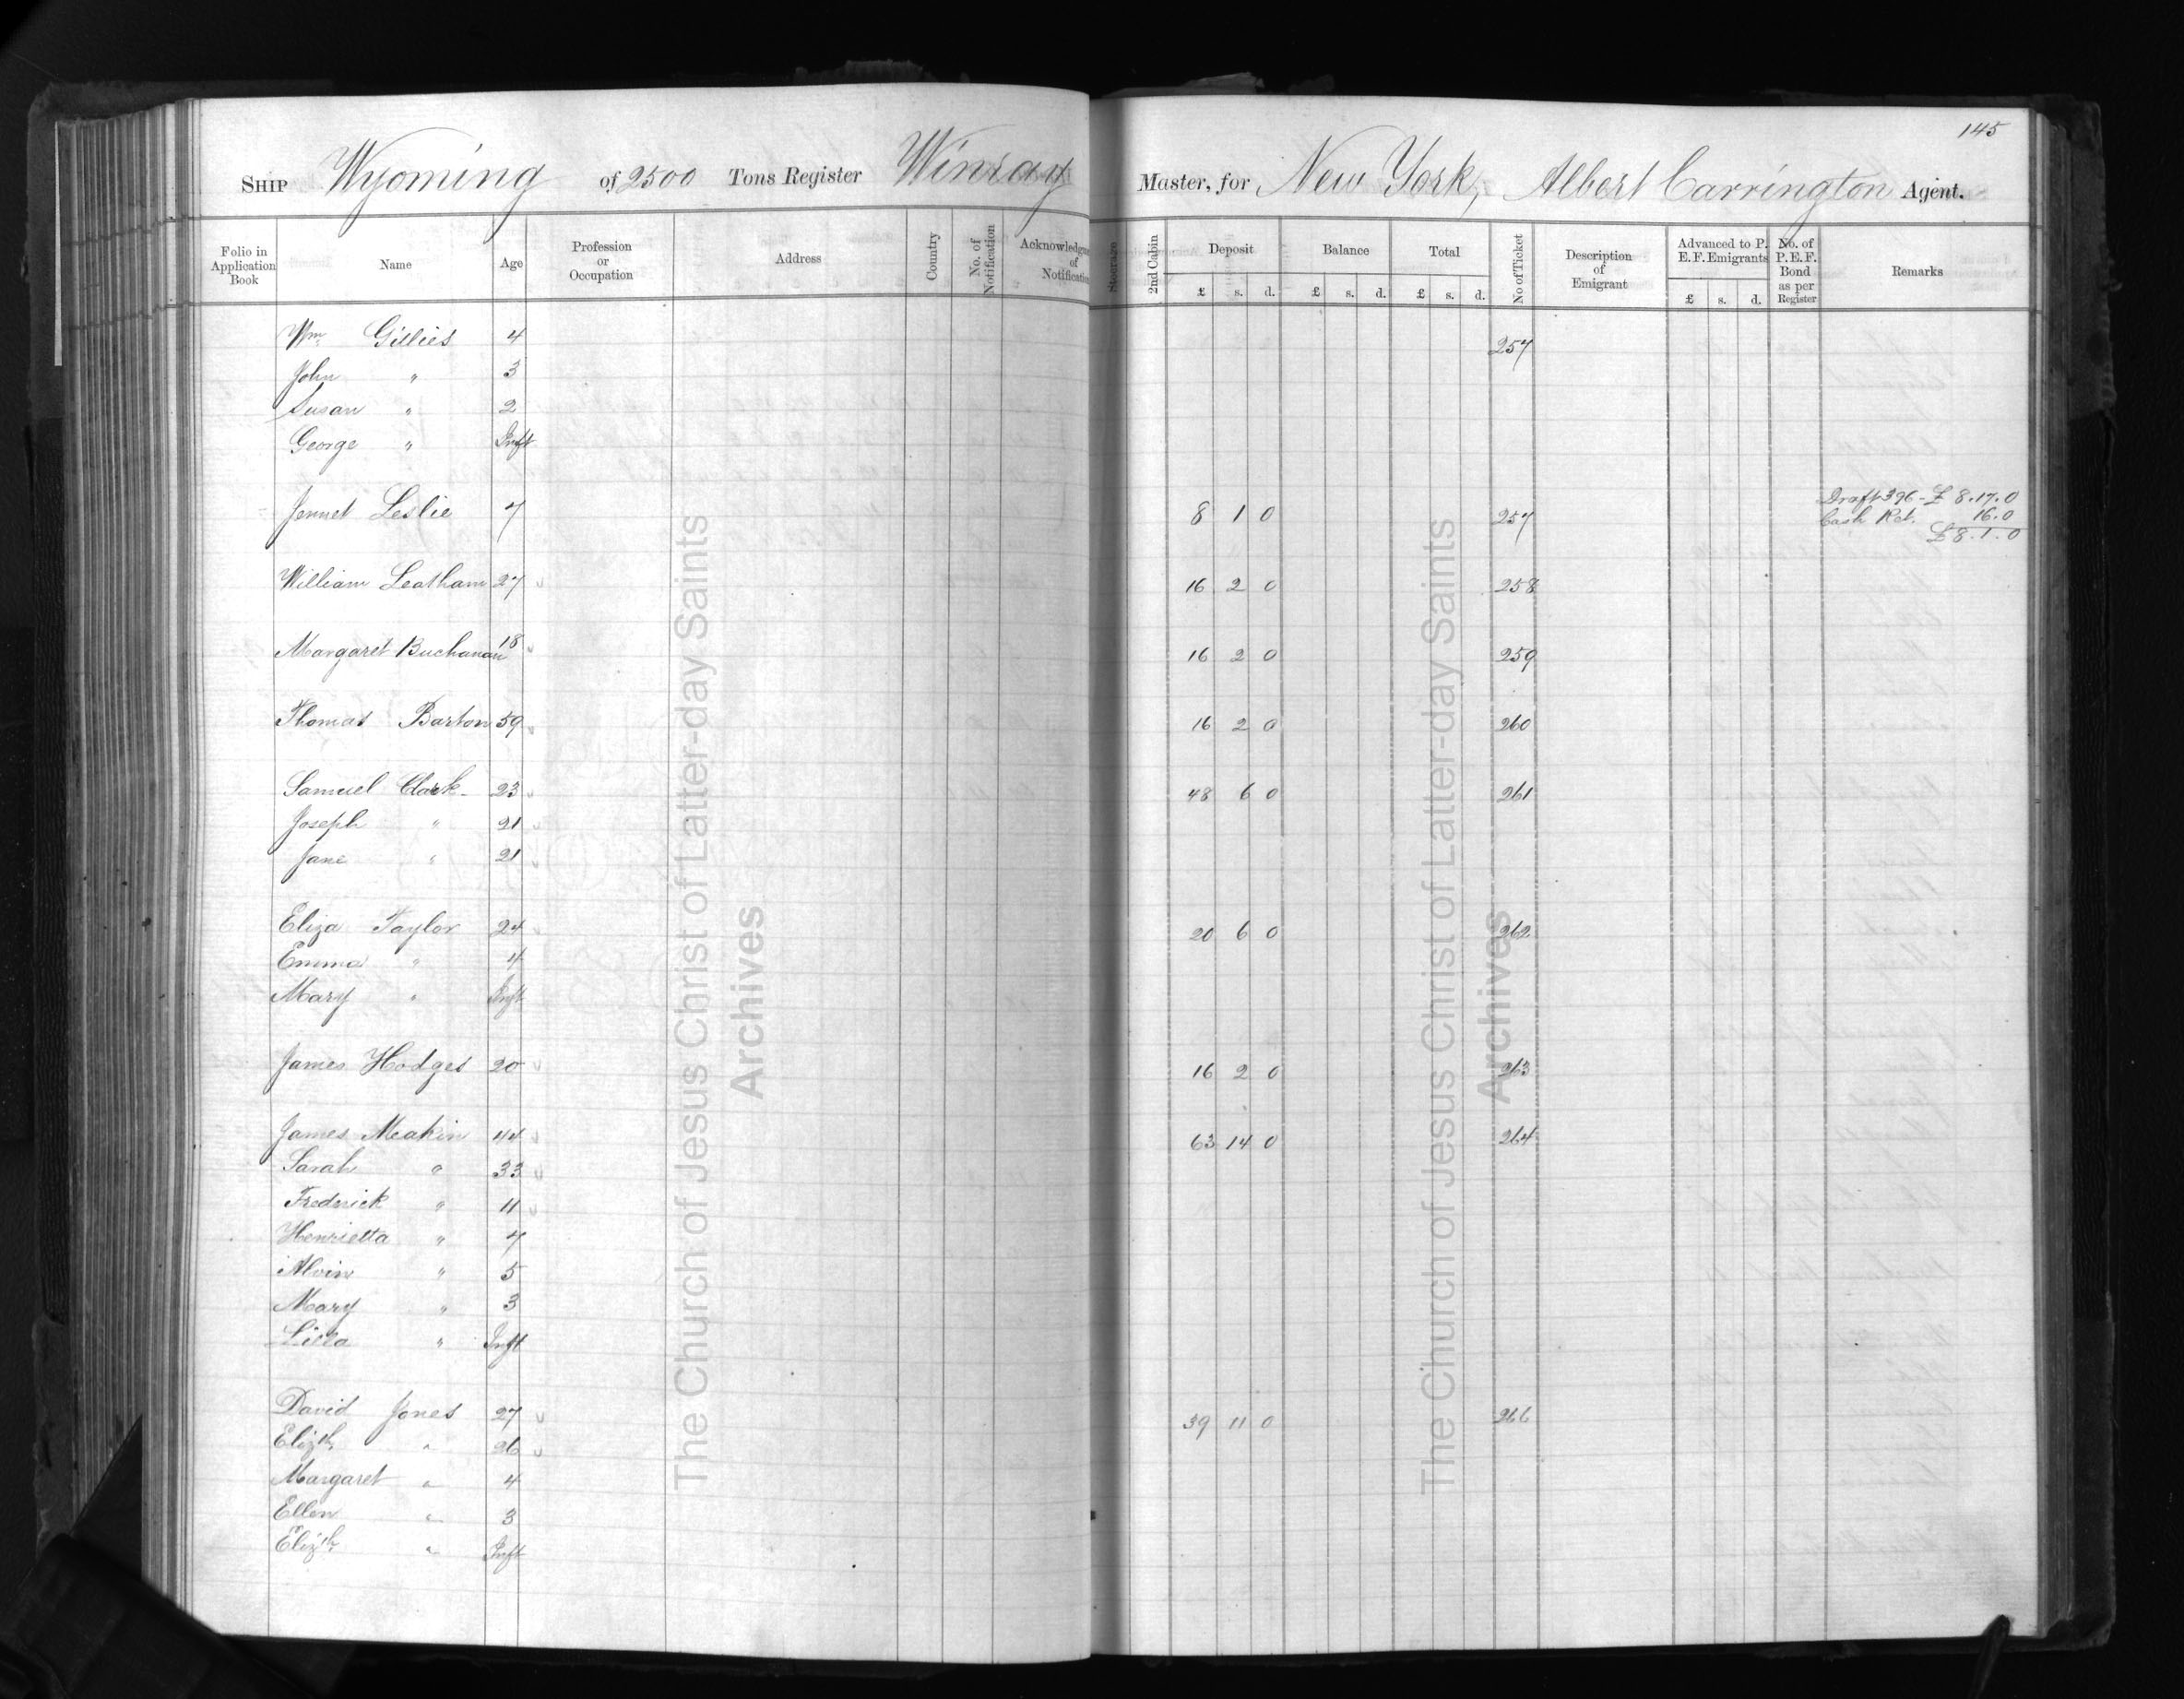 145
SHIP Wyoming of 2500 Tons Register Winray Master, for New York, Albert Carrington Agent.
Folio in Application Book Name Age Profession or Occupation Address Country No. of Notification Acknowledgmen of Notification Steerage 2nd Cabin Deposit £ s. d. Balance £ s. d. Total £ s. d. No of Ticket Description of Emigrant Advanced to P. E. F. Emigrants £ s. d. No. of P. E. F. Bond as per Register Remarks
Wm Gillies 4 257
John " 3
Susan " 2
George " Inft
Draft 396 - £ 8.17.0
Jennet Leslie 7 8 1 0 257 Cash Ret. 16.0
£ 8.1.0
William Leatham 27 16 2 0 258
Margaret Buchanan 18 16 2 0 259
Thomas Barton 59 16 2 0 260
Samuel Clark 23 48 6 0 261
Joseph " 21
Jane " 21
Eliza Taylor 24 20 6 0 262
Emma " 4
Mary " Inft
James Hodges 20 16 2 0 263
James Meakin 44 63 14 0 264
Sarah " 33
Frederick " 11
Henrietta " 7
Alvin " 5
Mary " 3
Lilla " Inft
David Jones 27 39 11 0 266
Elizth " 26
Margaret " 4
Ellen " 3
Elizth " Inft
The Church of Jesus Christ of Latter-day Saints
Archives
The Church of Jesus Christ of Latter-day Saints
Archives